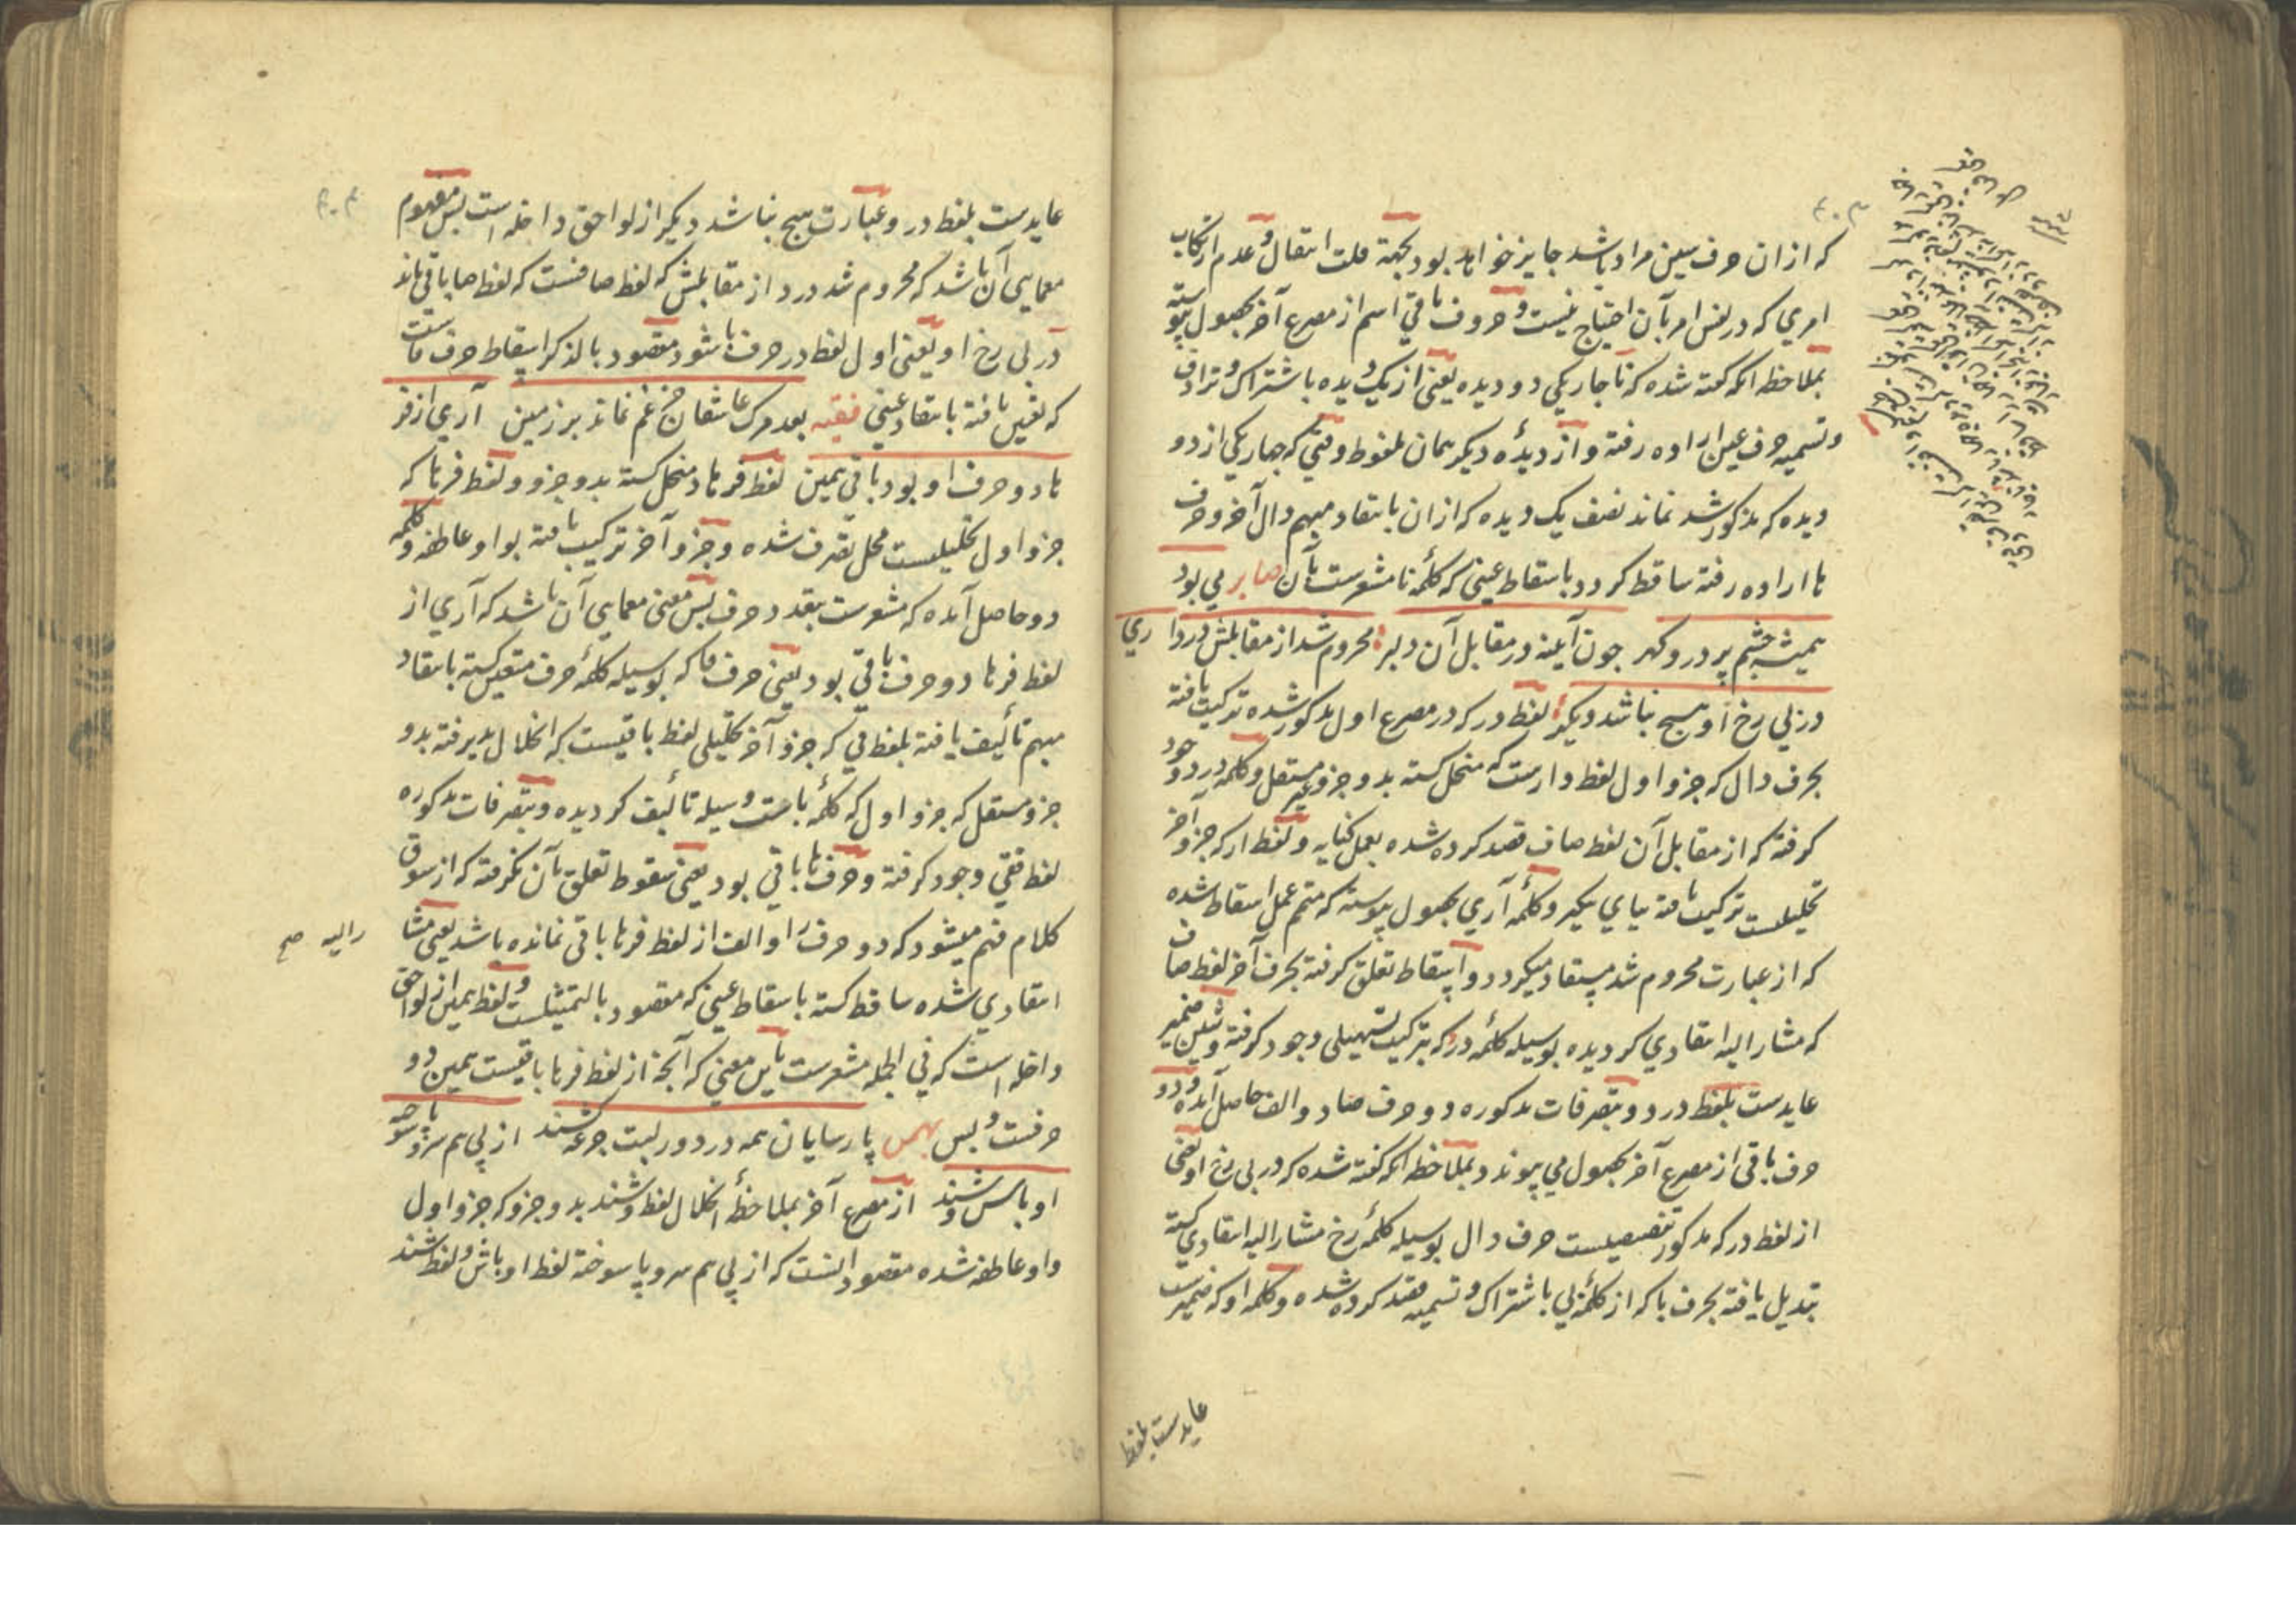 که ازان حرف معین مراد باشد جایز خواهد بود بجهة قلت انتقال و عدم ارتکاب
امری که در نفس امر بآن احتیاج نیست و حروف باقی اسم از مصرع آخر بحصول پیوسته
بملاحظه انکه گفته شده که تا چار یکی دو دیده یعنی از یک دیده باشتراک و ترادف
و تسمیه حرف عین اراده رفته و از دیدهٔ دیگر همان ملفوظ وقتی که چهار یکی از دو
دیده که مذکور شد نماند نصف یک دیده که ازان بانتقاد مبهم دال آخر و حرف
ها اراده رفته ساقط کردد باسقاط عینی که کلمهٔ نا مشعرست بآن صابر می بود
همیشه چشم پر درد و کهر چون آینه در مقابل آن دلبر محروم شد از مقابلش درد ارى
در پی رخ او هیچ نباشد دیگر لفظ در که در مصرع اول مذکور شده ترکیب یافته
بحرف دال که جزو اول لفظ دارست که منحل کشته بدو جزو غیر مستقل و کلمه درد وجود
کرفته که از مقابل آن لفظ صاف قصد کرده شده بعمل کنایه و لفظ ار که جزو آخر
تحلیلیست ترکیب یافته بیای دیگر و کلمهٔ آری بحصول پیوسته که متمم عمل اسقاط شده
که از عبارت محروم شد مستفاد میکردد و اسقاط تعلق کرفته بحرف آخر لفظ صاف
که مشار الیه انتقادی کردیده بوسیله کلمهٔ در که بترکیب تسهیلی وجود کرفته و شین ضمیر
عایدست بلفظ درد و بتصرفات مذکوره دو حرف صاد و الف حاصل آمده و دو
حرف باقی از مصرع آخر بحصول می پیوندد بملاحظه انکه گفته شده که در پی رخ او یعنی
از لفظ در که مذکور تنصیصیست حرف دال بوسیله کلمهٔ رخ مشار الیه انتقادی کشته
تبدیل یافته بحرف با که از کلمهٔ پی باشتراک و تسمیه قصد کرده شده و کلمه او که ضمیرست
عایدست بلفظ
عایدست بلفظ در و عبارت هیچ نباشد دیگر از لواحق داخله است پس مفهوم
معمایی آن باشد که محروم شد درد از مقابلش که لفظ صافست که لفظ صا باقی ماند
در پی رخ او یعنی اول لفظ در حرف با شود مقصود بالذکر اسقاط حرف فاست
که تعین یافته بانتقاد عینی فقیه بعد مرک عاشقان جز غم نماند بر زمین آری از فر
هاد دو حرف او بود باقی همین لفظ فرهاد منحل کشته بدو جزو و لفظ فرها که
جزو اول تحلیلیست محل تصرف شده و جزو آخر ترکیب یافته بواو عاطفه و کلمه
دو حاصل آمده که مشعرست بقصد دو حرف پس معنی معمایی آن باشد که آری از
لفظ فرها دو حرف باقی بود یعنی حرف فا که بوسیله کلمهٔ حرف متعین کشته بانتقاد
مبهم تألیف یافته بلفظ قی که جزو آخر تحلیلی لفظ باقیست که انحلال پذیرفته بدو
جزو مستقل که جزو اول که کلمهٔ باست وسیله تألیف کردیده و بتصرفات مذکوره
لفظ فقی وجود کرفته و حرف ها باقی بود یعنی سقوط تعلق بآن نکرفته که از سوق
کلام فهم میشود که دو حرف را و الف از لفظ فرها باقی نمانده باشد یعنی مشا
را الیه صح
انتقادی شده ساقط کشته باسقاط عینی که مقصود بالتمثیلست و لفظ همین از لواحق
داخله است که فی الجمله مشعرست باین معنی که آنچه از لفظ فرها باقیست همین دو
حرفست و بس بهمن پارسایان همه در دور لبت جرعه کشند از پی هم سر و پا سوخته
او باش وشند از مصرع آخر بملاحظهٔ انحلال لفظ وشند بدو جزو که جزو اول
واو عاطفه شده مقصود آنست که از پی هم سر و پا سوخته لفظ اوباش و لفظ شند